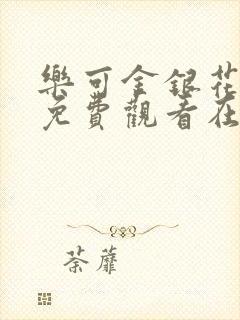 樂可金銀花
免費觀看在
荼蘼